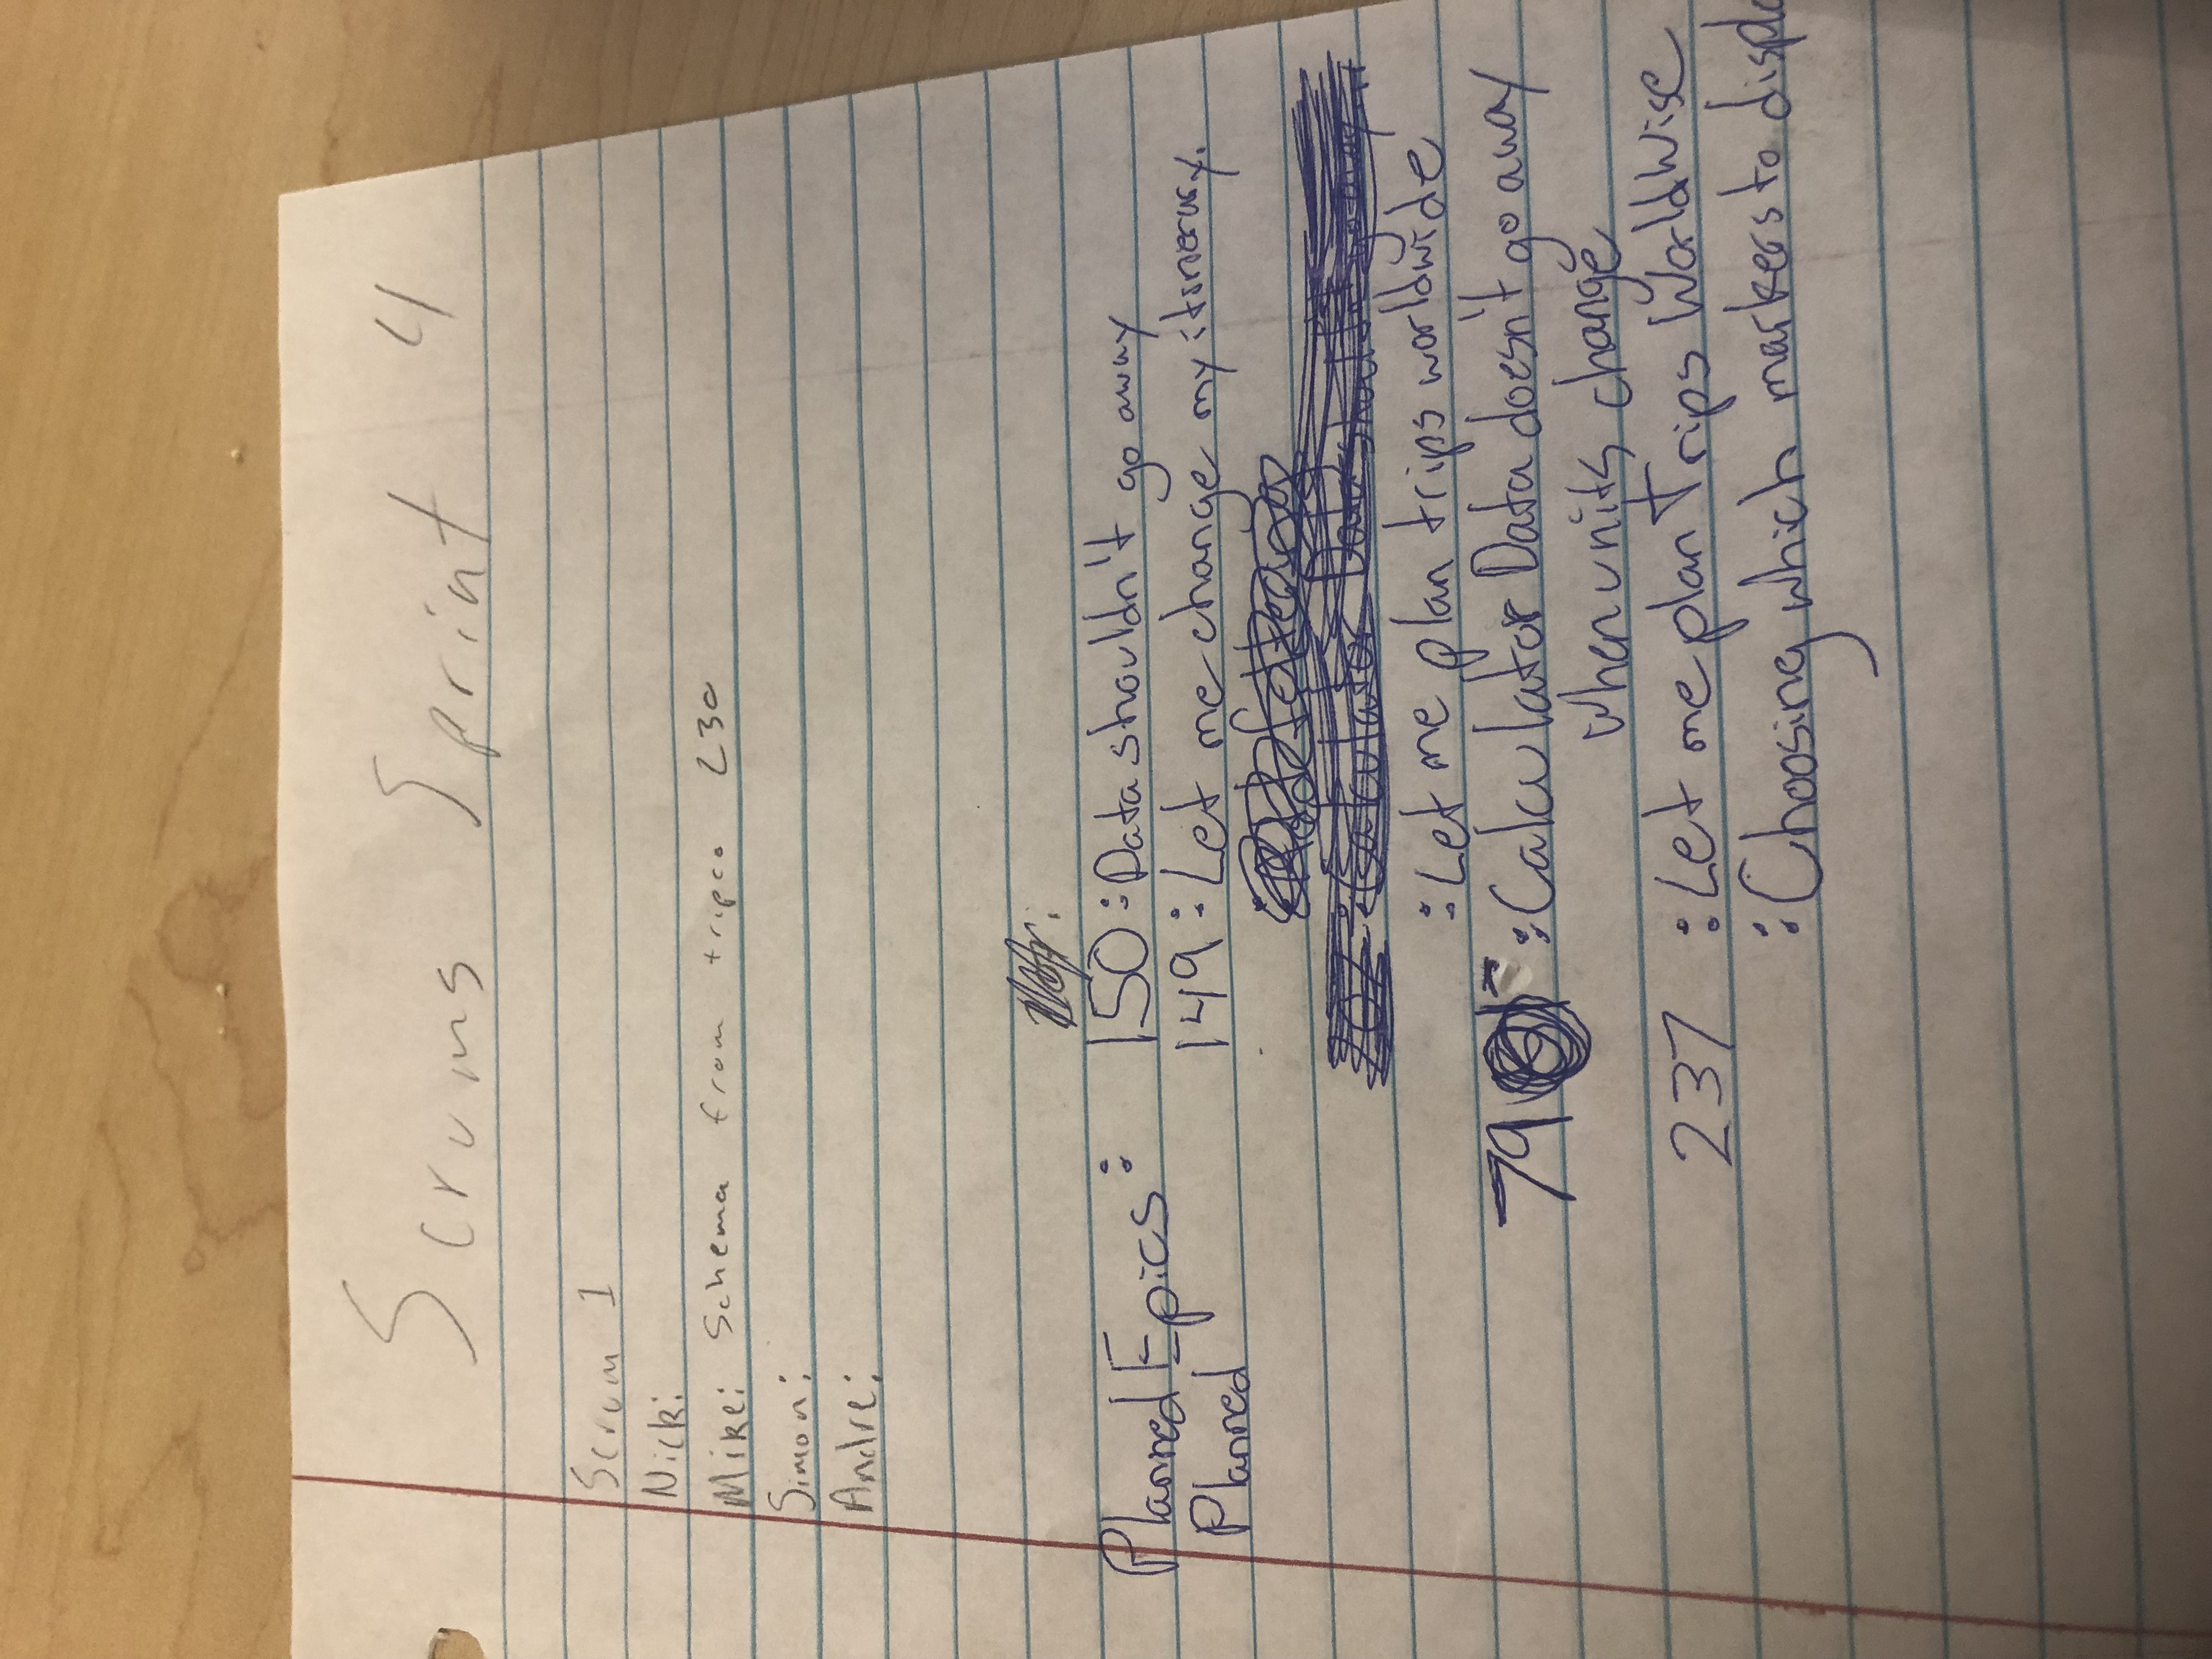 Scrums Sprint 4
Scrum 1
Nick:
Mike: Schema from tripco 230
Simon:
Andre:
Planned Epics: 150: Data shouldn't go away
Planned 149: Let me change my itinerary.
202: Calculator Data shouldn't go away
: Let me plan trips worldwide
79 : Calculator Data doesn't go away
when units change
237 : Let me plan Trips WorldWise
: Choosing which markers to displa